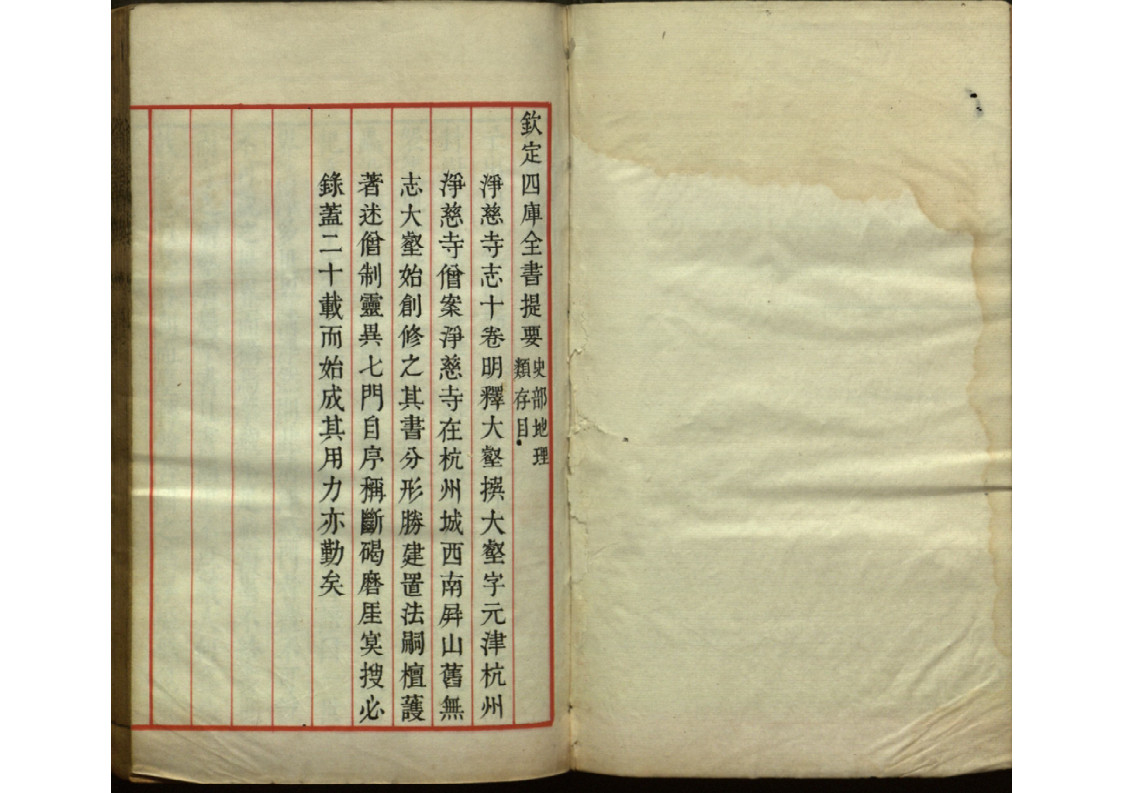 欽定四庫全書提要史部地理類存目
淨慈寺志十卷明釋大壑撰大壑字元津杭州
淨慈寺僧案淨慈寺在杭州城西南屛山舊無
志大壑始創修之其書分形勝建置法嗣檀護
著述僧制靈異七門自序稱斷碣磨厓㝠搜必
錄蓋二十載而始成其用力亦勤矣